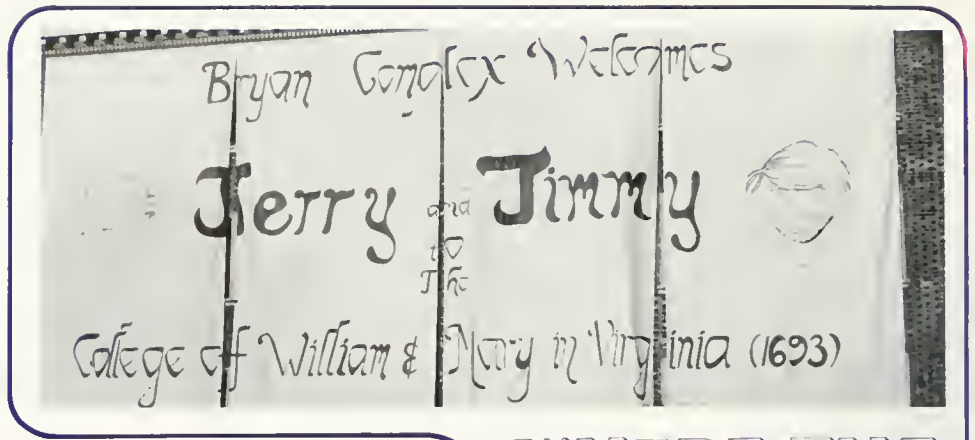 Bryan Complex Welcomes
Jerry and Jimmy
to
The
College of William & Mary in Virginia (1693)